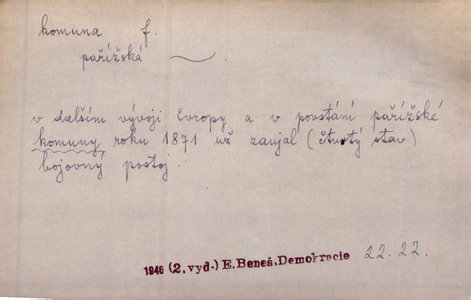 komuna f.
pařížská ~.
v dalším vývoji Evropy a v povstání pařížské
komuny roku 1871 už zaujal (čtvrtý stav)
bojovný postoj.
1946 (2. vyd.) E. Beneš, Demokracie 22.22.